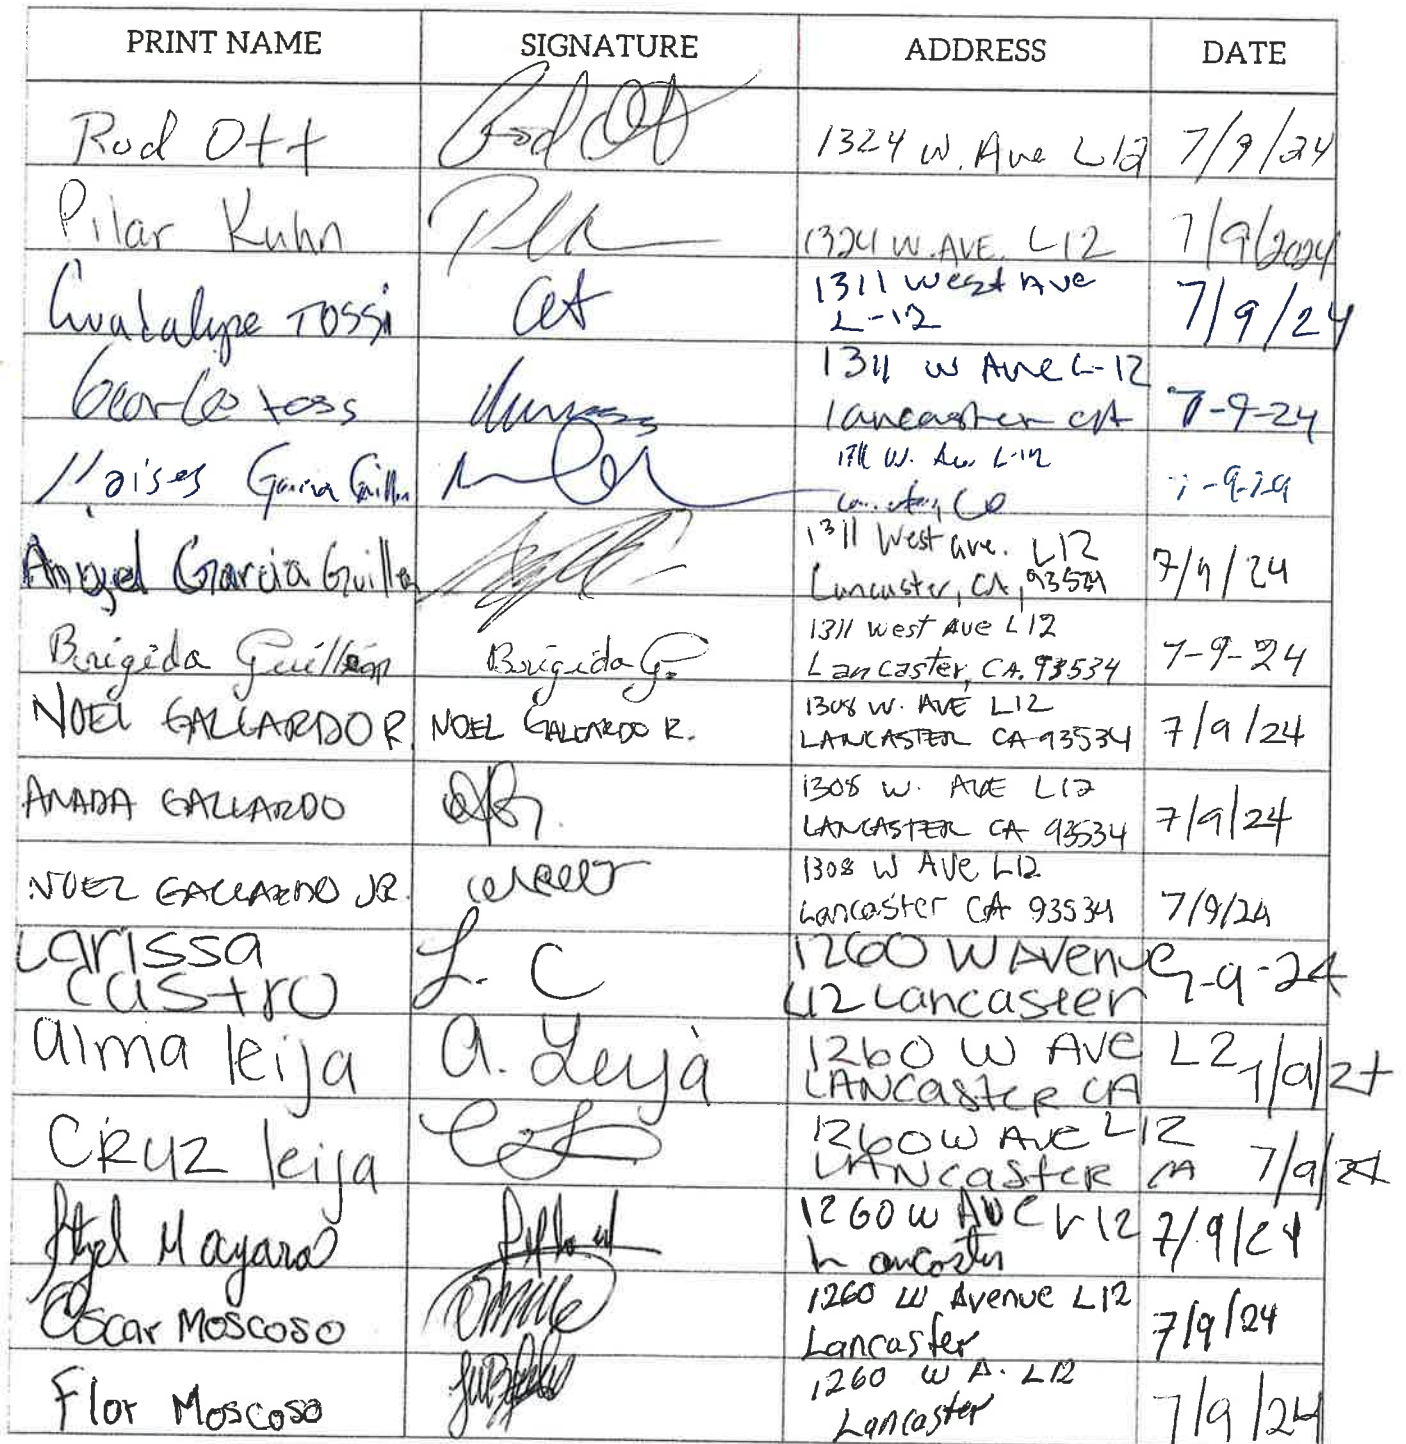 PRINT NAME SIGNATURE ADDRESS DATE
Rod Ott Rod Ott 1324 W. Ave L12 7/9/24
Pilar Kuhn 1324 W. AVE. L12 7/9/2024
Guadalupe TOSSi 1311 West Ave
L-12 7/9/24
1311 W Ave L-12
toss Lancaster CA 7-9-24
Moises Garcia Guillen W. Ave L-12
Angel Garcia Guillen 1311 West ave. L12
Lancaster, CA, 93534 7/9/24
Brigida Guillén Brigida G. 1311 West Ave L12
Lancaster, CA. 93534 7-9-24
NOEL GALLARDO R. NOEL GALLARDO R. 1308 W. AVE L12
LANCASTER CA 93534 7/9/24
ANADA GALLARDO 1308 W. AVE L12
LANCASTER CA 93534 7/9/24
NOEL GALLARDO JR. 1308 W AVE L12
Lancaster CA 93534 7/9/24
Larissa
Castro L. C 1260 W Avenue
L12 Lancaster 7-9-24
alma leija a. Leija 1260 W AVE L2
LANCaster CA 7/9/24
CRUZ leija 1260 W AVE L12
LANCaster CA 7/9/24
1260 W AVE L12
Lancaster 7/9/24
Oscar Moscoso 1260 W Avenue L12
Lancaster 7/9/24
Flor Moscoso 1260 W A. L12
Lancaster 7/9/24